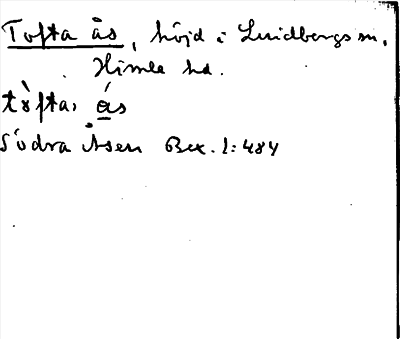 Tofta ås, höjd i Lindbergs sn,
Himle hd.
tòfta, ás
Södra Åsen Bex. 1:484